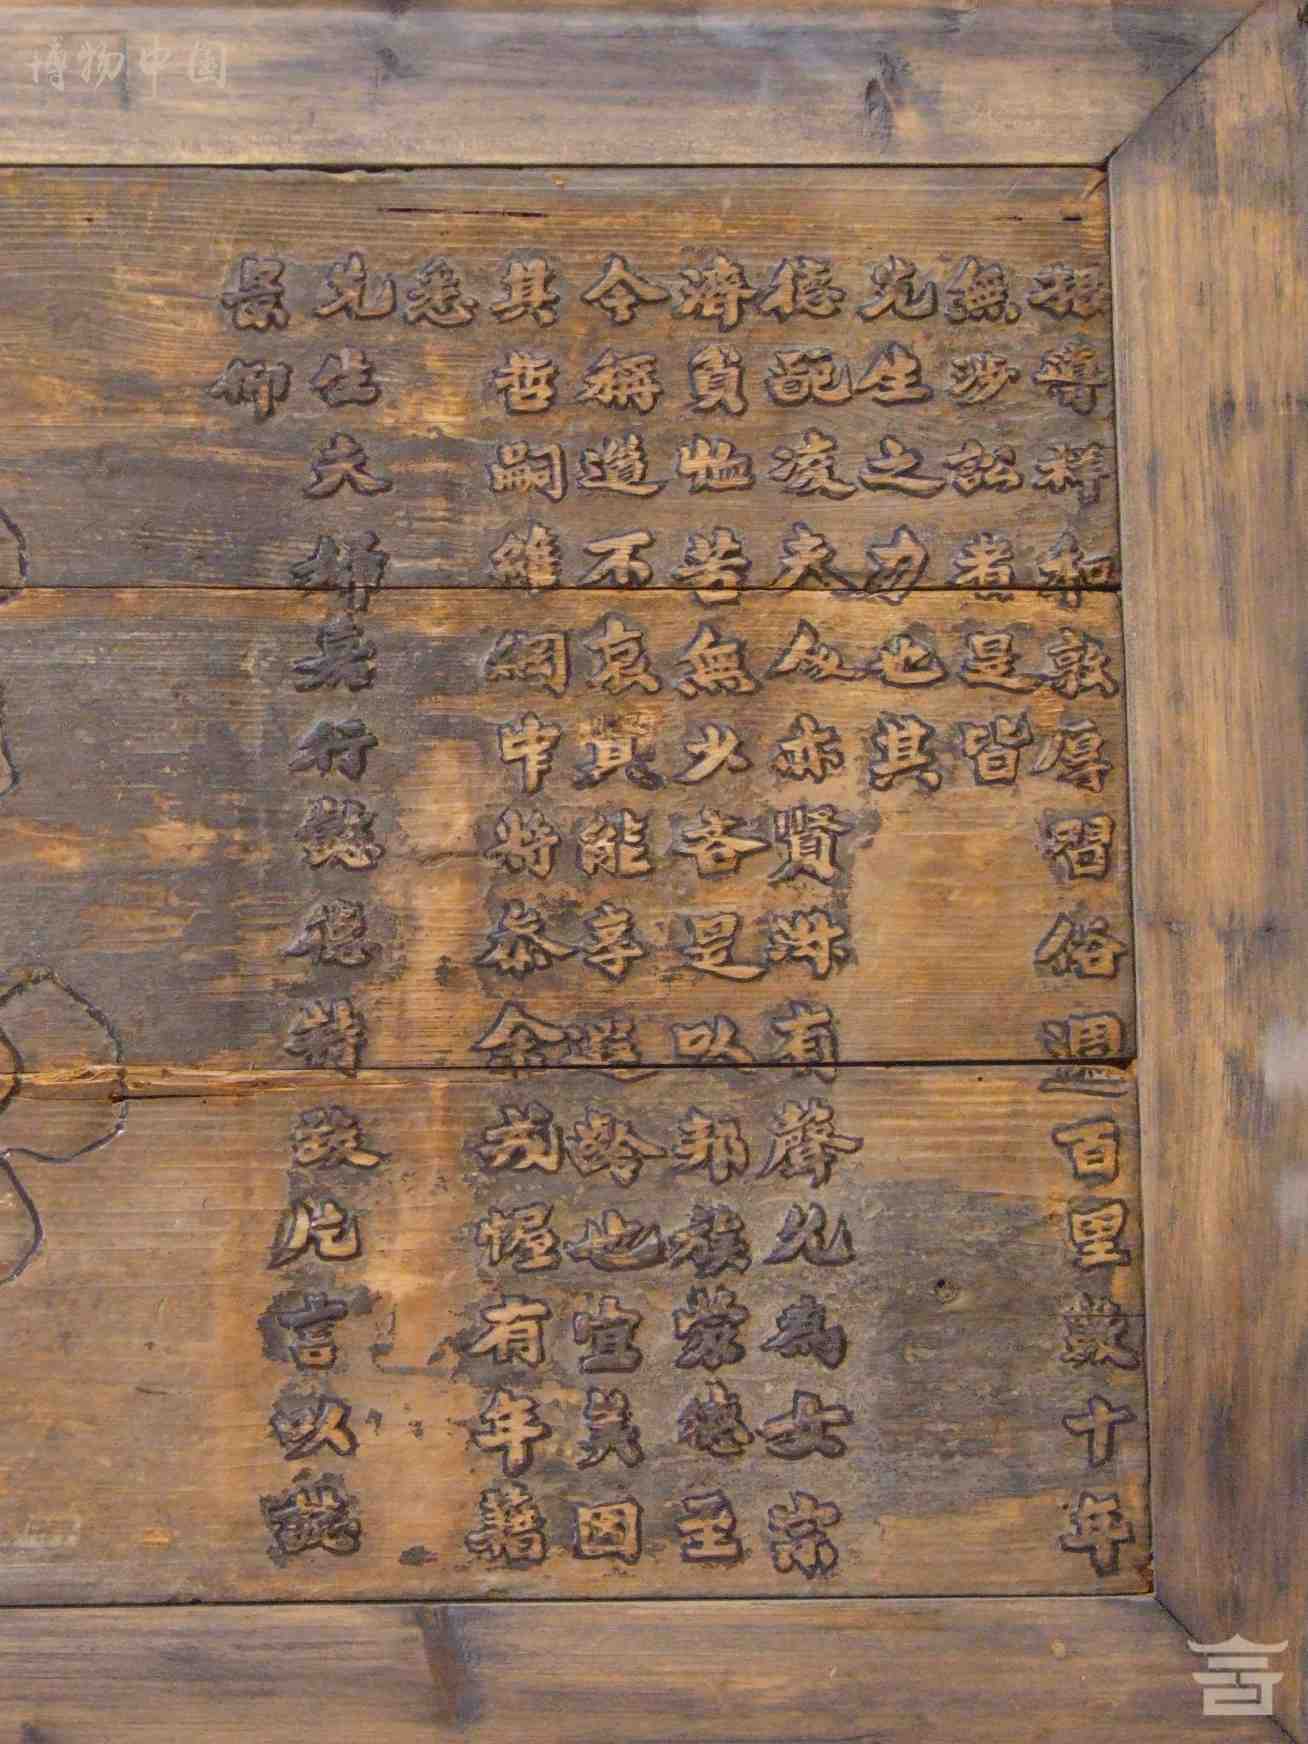 博物中国
振導祥和敦厚習俗週百里数十年
無涉訟者是皆
先生之力也其
德配凌夫人亦賢淋有聲允為女宗
濟貧恤苦無少吝是以邦族蒙德至
今稱道不衰賢能享遐齡也宜矣因
其哲嗣維綱中將泰余戎幄有年藉
悉
先生夫婦嘉行懿德特政片言以誌
景仰